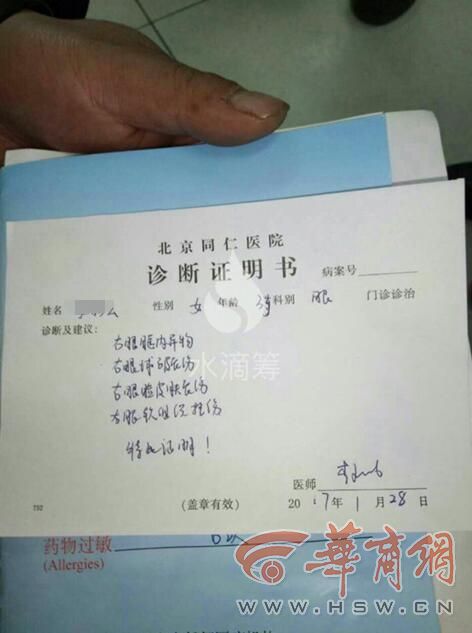 北京同仁医院
诊断证明书 病案号
姓名 性别 女 年龄 科别 眼 门诊诊治
诊断及建议:
右眼眶内异物
右眼球破裂伤
右眼睑皮肤裂伤
右眼软组织挫伤
特此证明!
水滴筹
医师
(盖章有效) 2017年1月28日
752
药物过敏
(Allergies)
华商网
WWW.HSW.CN